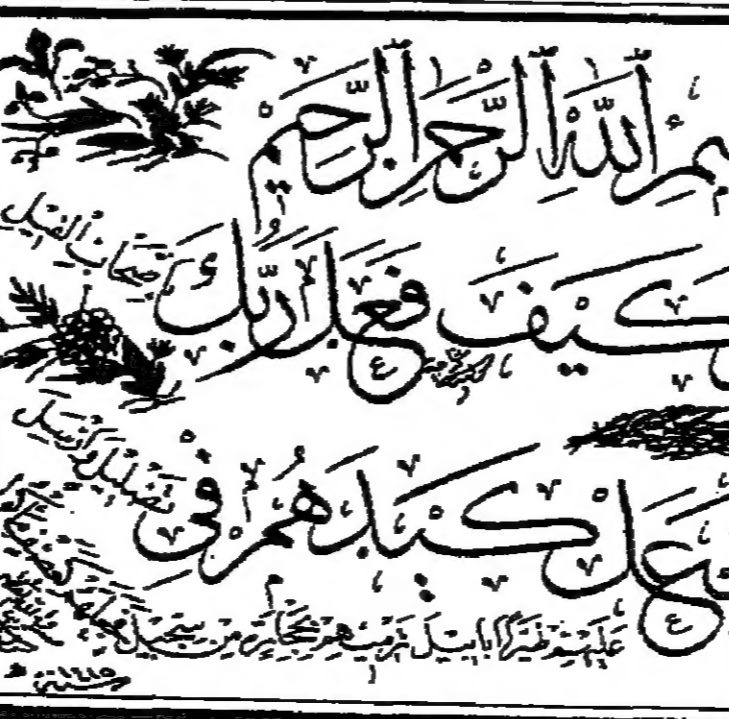 بِسْمِ ٱللَّهِ ٱلرَّحْمَٰنِ ٱلرَّحِيمِ
كَيْفَ فَعَلَ رَبُّكَ بِأَصْحَابِ ٱلْفِيلِ
يَجْعَلْ كَيْدَهُمْ فِي تَضْلِيلٍ وَأَرْسَلَ
عَلَيْهِمْ طَيْرًا أَبَابِيلَ تَرْمِيهِمْ بِحِجَارَةٍ مِنْ سِجِّيلٍ فَجَعَلَهُمْ كَعَصْفٍ
١٤١٥